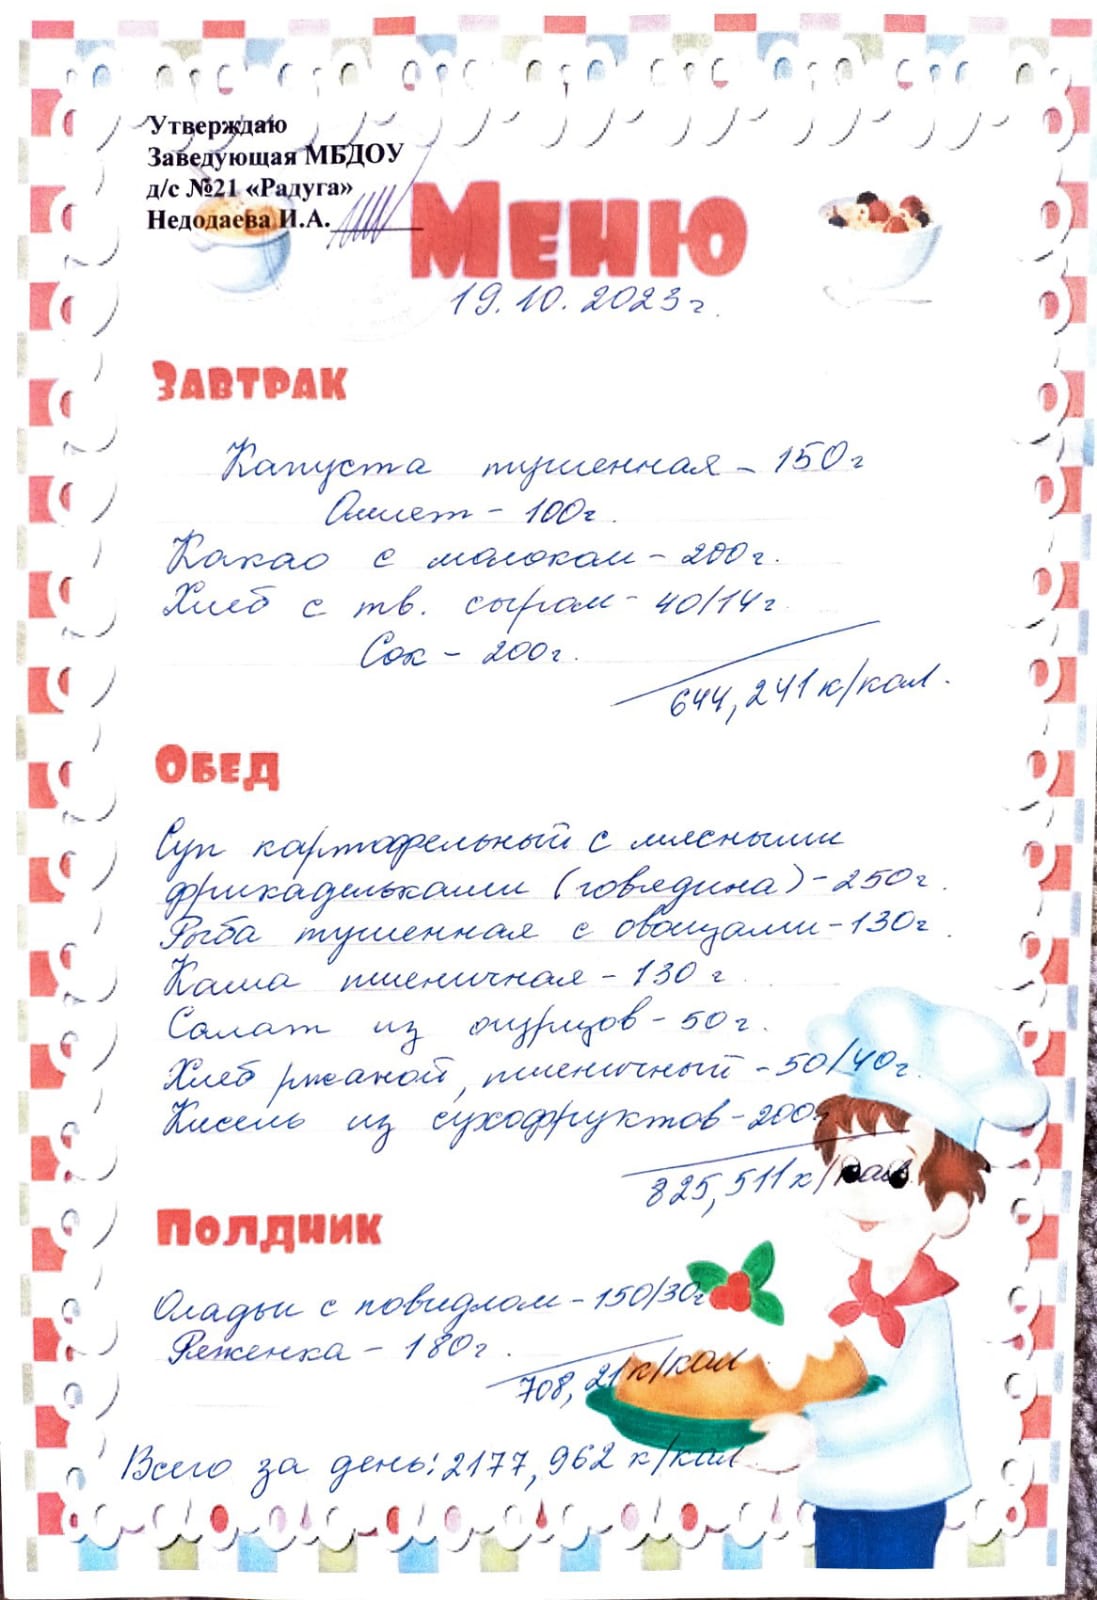 Утверждаю
Заведующая МБДОУ
д/с №21 «Радуга»
Недодаева И.А.
Меню
19.10.2023г.
Завтрак
Капуста тушенная - 150г
Омлет - 100г.
Какао с молоком - 200г.
Хлеб с тв. сыром - 40/14г.
Сок - 200г.
644,241 к/кал.
Обед
Суп картофельный с мясными
фрикадельками (говядина) - 250г.
Рыба тушенная с овощами - 130г.
Каша пшеничная - 130 г.
Салат из огурцов - 50г.
Хлеб ржаной, пшеничный - 50/40г.
Кисель из сухофруктов - 200г
825,511 к/кал.
Полдник
Оладьи с повидлом - 150/30г
Ряженка - 180г.
708,21 к/кал
Всего за день: 2177,962 к/кал